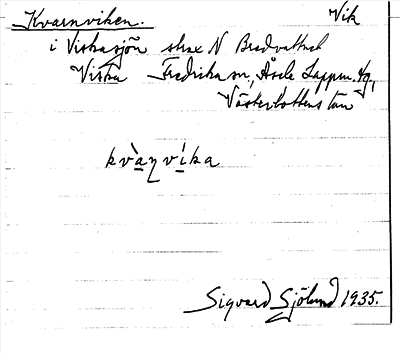 Kvarnviken. Vik
i Viskasjön strax N Bredvattnet
Viska Fredrika sn, Åsele Lappm. fg,
Västerbottens län
kvàɳvíka
Sigvard Sjölund 1935.